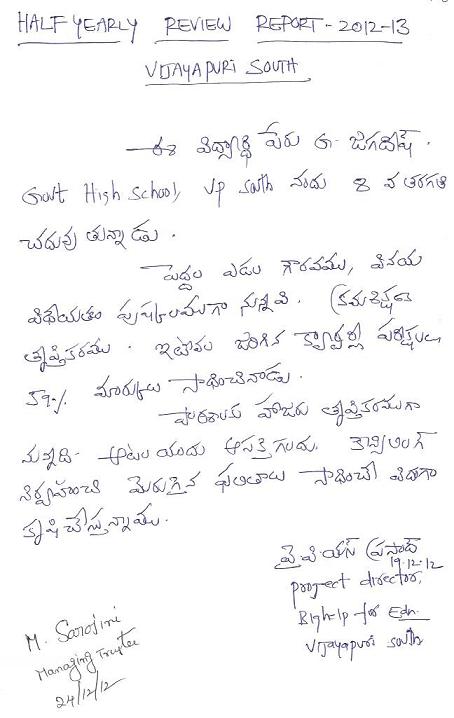 HALF YEARLY REVIEW REPORT - 2012-13
VIJAYAPURI SOUTH
ఈ విద్యార్థి పేరు G. జగదీష్.
Govt High School, VP South నందు 8 వ తరగతి
చదువు తున్నాడు.
పెద్దల ఎడల గౌరవము, వినయ
విధేయతలు పుష్కలముగా నున్నవి. క్రమశిక్షణ
తృప్తికరము. ఇటీవల జరిగిన క్వార్టర్లీ పరీక్షలల
59% మార్కులు సాధించినాడు.
పాఠశాల హాజరు తృప్తికరముగా
నున్నది. ఆటల యందు ఆసక్తి గలదు. కౌన్సిలింగ్
నిర్వహించి మెరుగైన ఫలితాలు సాధించే విధంగా
కృషి చేస్తున్నాము.
వై.పి.యస్ ప్రసాద్
19.12.12
project director,
Bighelp for Edn.
Vijayapuri South
M. Sarojini
Managing Trustee
24/12/12